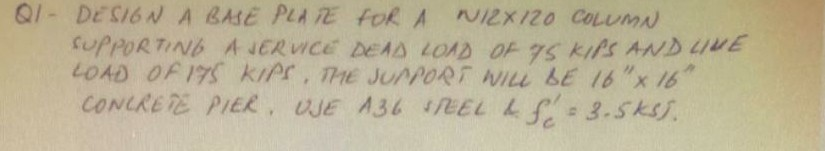 Q1- DESIGN A BASE PLATE FOR A W12X120 COLUMN
SUPPORTING A SERVICE DEAD LOAD OF 75 KIPS AND LIVE
LOAD OF 175 KIPS. THE SUPPORT WILL BE 16" x 16"
CONCRETE PIER. USE A36 STEEL & f'c = 3.5 KSI.